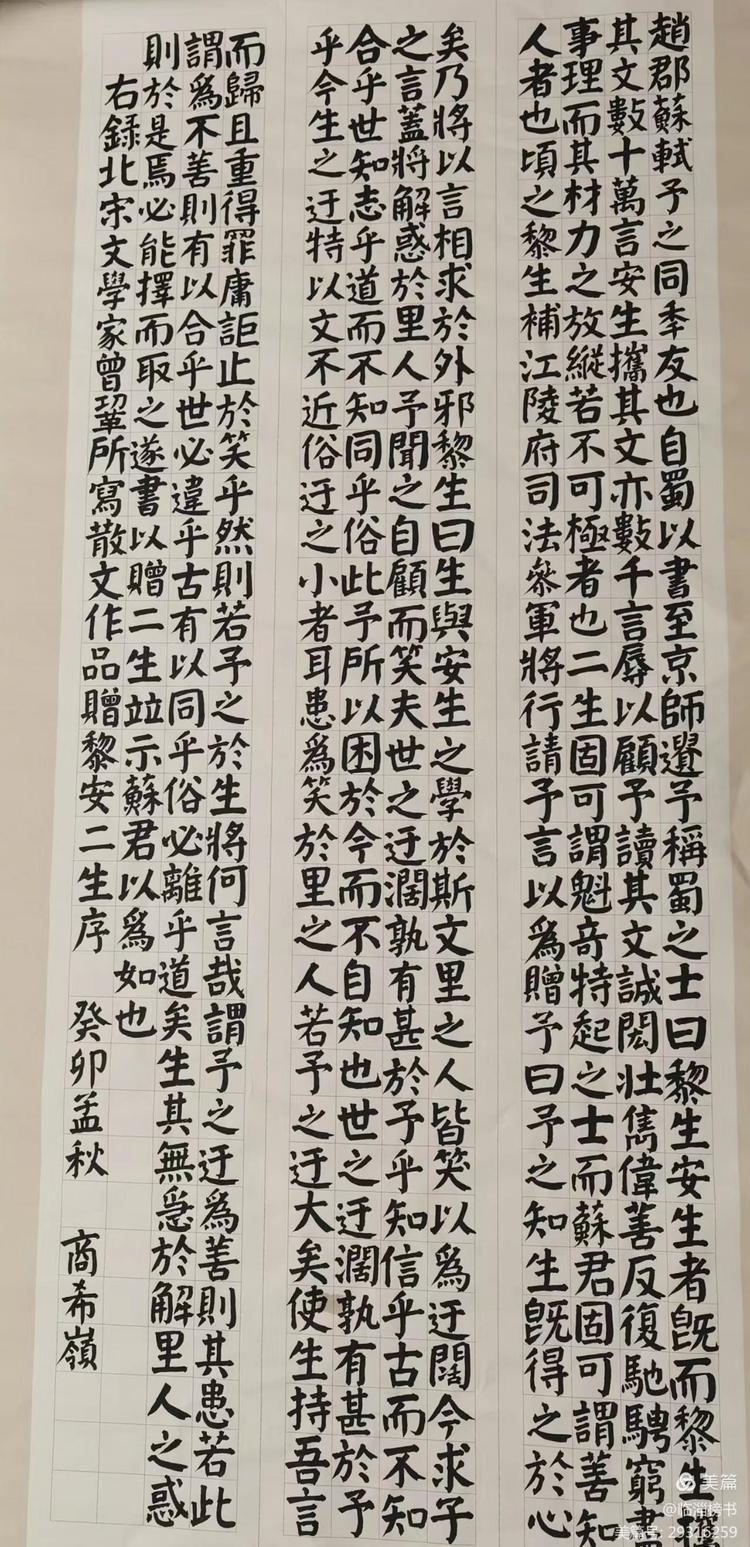 趙郡蘇軾予之同秊友也自蜀以書至京師遺予稱蜀之士曰黎生安生者旣而黎生攜
其文數十萬言安生攜其文亦數千言辱以顧予讀其文誠閎壯雋偉善反復馳騁窮盡
事理而其材力之放縱若不可極者也二生固可謂魁奇特起之士而蘇君固可謂善知
人者也頃之黎生補江陵府司法叅軍將行請予言以爲贈予曰予之知生旣得之於心
矣乃將以言相求於外邪黎生曰生與安生之學於斯文里之人皆笑以爲迂闊今求子
之言蓋將解惑於里人予聞之自顧而笑夫世之迂濶孰有甚於予乎知信乎古而不知
合乎世知志乎道而不知同乎俗此予所以困於今而不自知也世之迂濶孰有甚於予
乎今生之迂特以文不近俗迂之小者耳患爲笑於里之人若予之迂大矣使生持吾言
而歸且重得罪庸詎止於笑乎然則若予之於生將何言哉謂予之迂爲善則其患若此
謂爲不善則有以合乎世必違乎古有以同乎俗必離乎道矣生其無急於解里人之惑
則於是焉必能擇而取之遂書以贈二生竝示蘇君以爲如也
右錄北宋文學家曾鞏所寫散文作品贈黎安二生序 癸卯孟秋 商希嶺
美篇
@临淄榜书
美篇号: 29316259